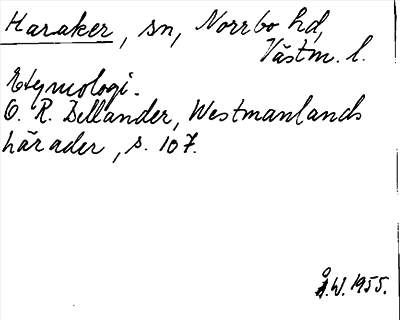 Haraker, sn, Norrbo hd,
Västm. l.
Etymologi.
O. R. Dellander, Westmanlands
härader, s. 107.
Å.W. 1955.